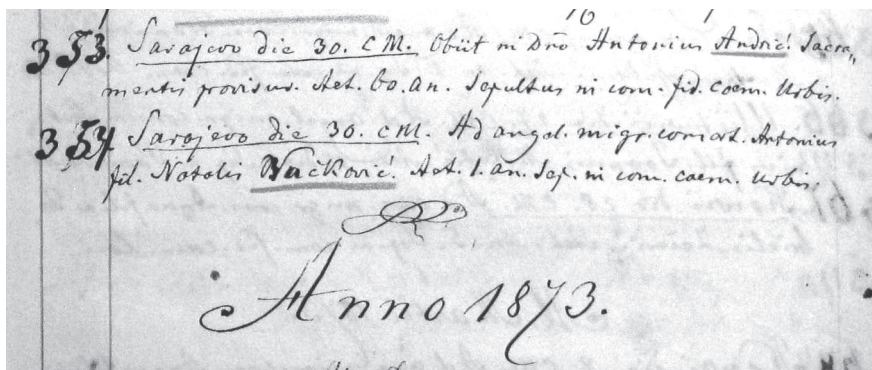 353. Sarajevo die 30. CM. Obiit in Dño Antonius Andrić. Sacra„
mentis provisus. Aet. 60. an. Sepultus in com. fid. coem. Urbis.
354. Sarajevo die 30. CM. Ad angel. migr. consort. Antonius
fil. Natalis Vučković. Aet. 1. an. Sep. in com. caem. Urbis.
Anno 1873.